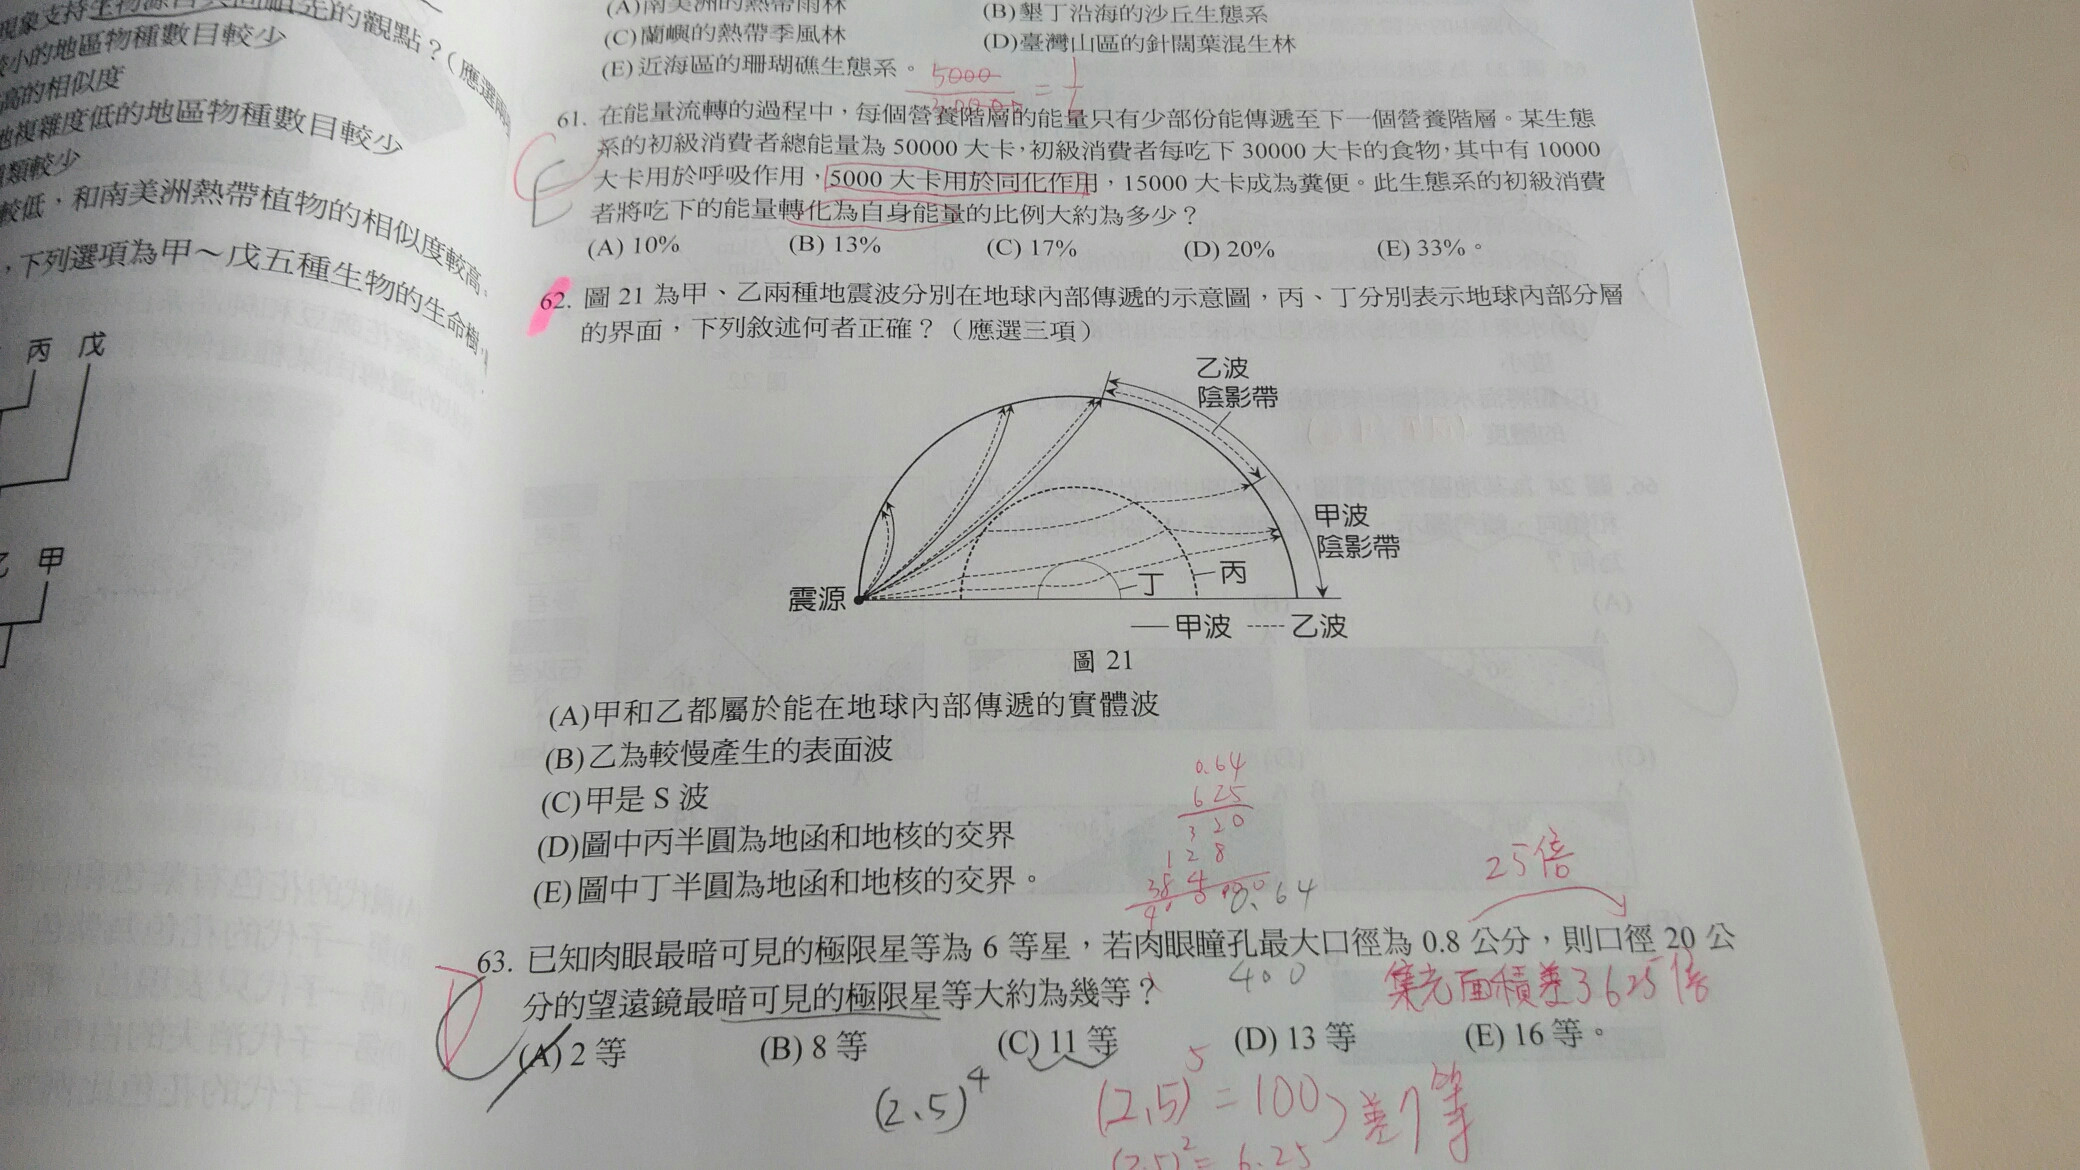 現象支持生物源自共同祖先的觀點？(應選兩
較小的地區物種數目較少
高的相似度
地複雜度低的地區物種數目較少
類較少
較低，和南美洲熱帶植物的相似度較高。
，下列選項為甲～戊五種生物的生命樹，
丙 戊
乙 甲
(A)南美洲的熱帶雨林 (B)墾丁沿海的沙丘生態系
(C)蘭嶼的熱帶季風林 (D)臺灣山區的針闊葉混生林
(E)近海區的珊瑚礁生態系。
5000
61. 在能量流轉的過程中，每個營養階層的能量只有少部份能傳遞至下一個營養階層。某生態
系的初級消費者總能量為 50000 大卡，初級消費者每吃下 30000 大卡的食物，其中有 10000
大卡用於呼吸作用，5000 大卡用於同化作用，15000 大卡成為糞便。此生態系的初級消費
者將吃下的能量轉化為自身能量的比例大約為多少？
(A) 10% (B) 13% (C) 17% (D) 20% (E) 33%。
C
E
62. 圖 21 為甲、乙兩種地震波分別在地球內部傳遞的示意圖，丙、丁分別表示地球內部分層
的界面，下列敘述何者正確？（應選三項）
乙波
陰影帶
甲波
陰影帶
丙
丁
震源
甲波 乙波
圖 21
(A)甲和乙都屬於能在地球內部傳遞的實體波
(B)乙為較慢產生的表面波
(C)甲是 S 波
(D)圖中丙半圓為地函和地核的交界
(E)圖中丁半圓為地函和地核的交界。
0.64
625
320
128
0.64
25倍
63. 已知肉眼最暗可見的極限星等為 6 等星，若肉眼瞳孔最大口徑為 0.8 公分，則口徑 20 公
分的望遠鏡最暗可見的極限星等大約為幾等？
400
集光面積差了625倍
(A) 2 等 (B) 8 等 (C) 11 等 (D) 13 等 (E) 16 等。
D
(2.5)4
(2.5)5=100
差7等
(2.5)2=6.25